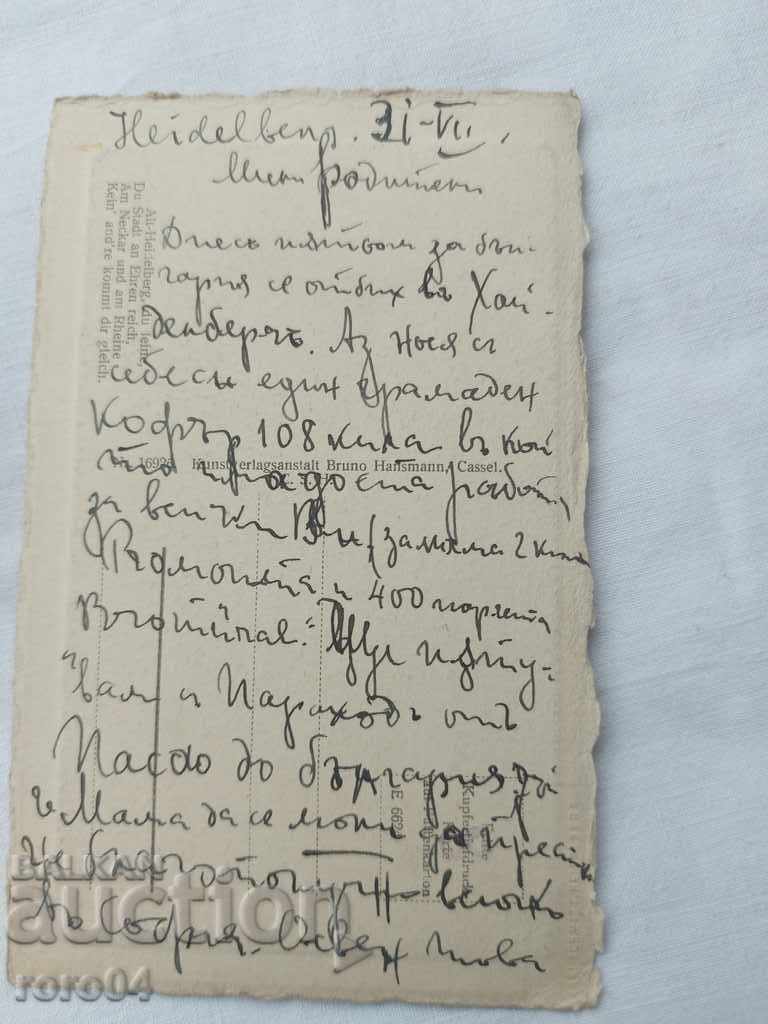 Heidelberg. 31-VII.
Мили Родители
Днесь пътьом за Бъл-
гария се отбих въ Хай-
делбергъ. Аз нося съ
себе си един грамаден
Кофър 108 кила въ кой
то има доста работи
за всички Ви (за мама 2 кила
и 400 парчета
Ще пъту-
вам съ Параходъ отъ
Пасао до България
Мама да се моли
благополучно
въ София. Освен това
Alt-Heidelberg, du feine
Du Stadt an Ehren reich,
Am Neckar und am Rheine
Kein' and're kommt dir gleich.
16926 Kunstverlagsanstalt Bruno Hansmann, Cassel.
Kupfertiefdruck
JE 662
BALKAN
auction
roro04